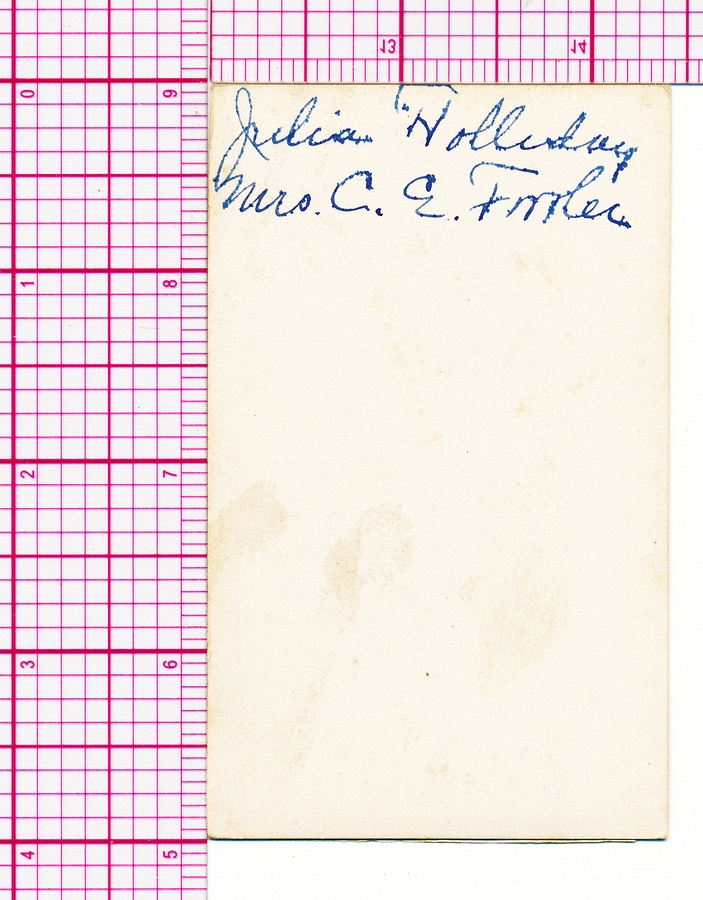 13 14
0 9
Julia Holliday
Mrs. C. E. Fowler
1 8
2 7
3 6
4 5